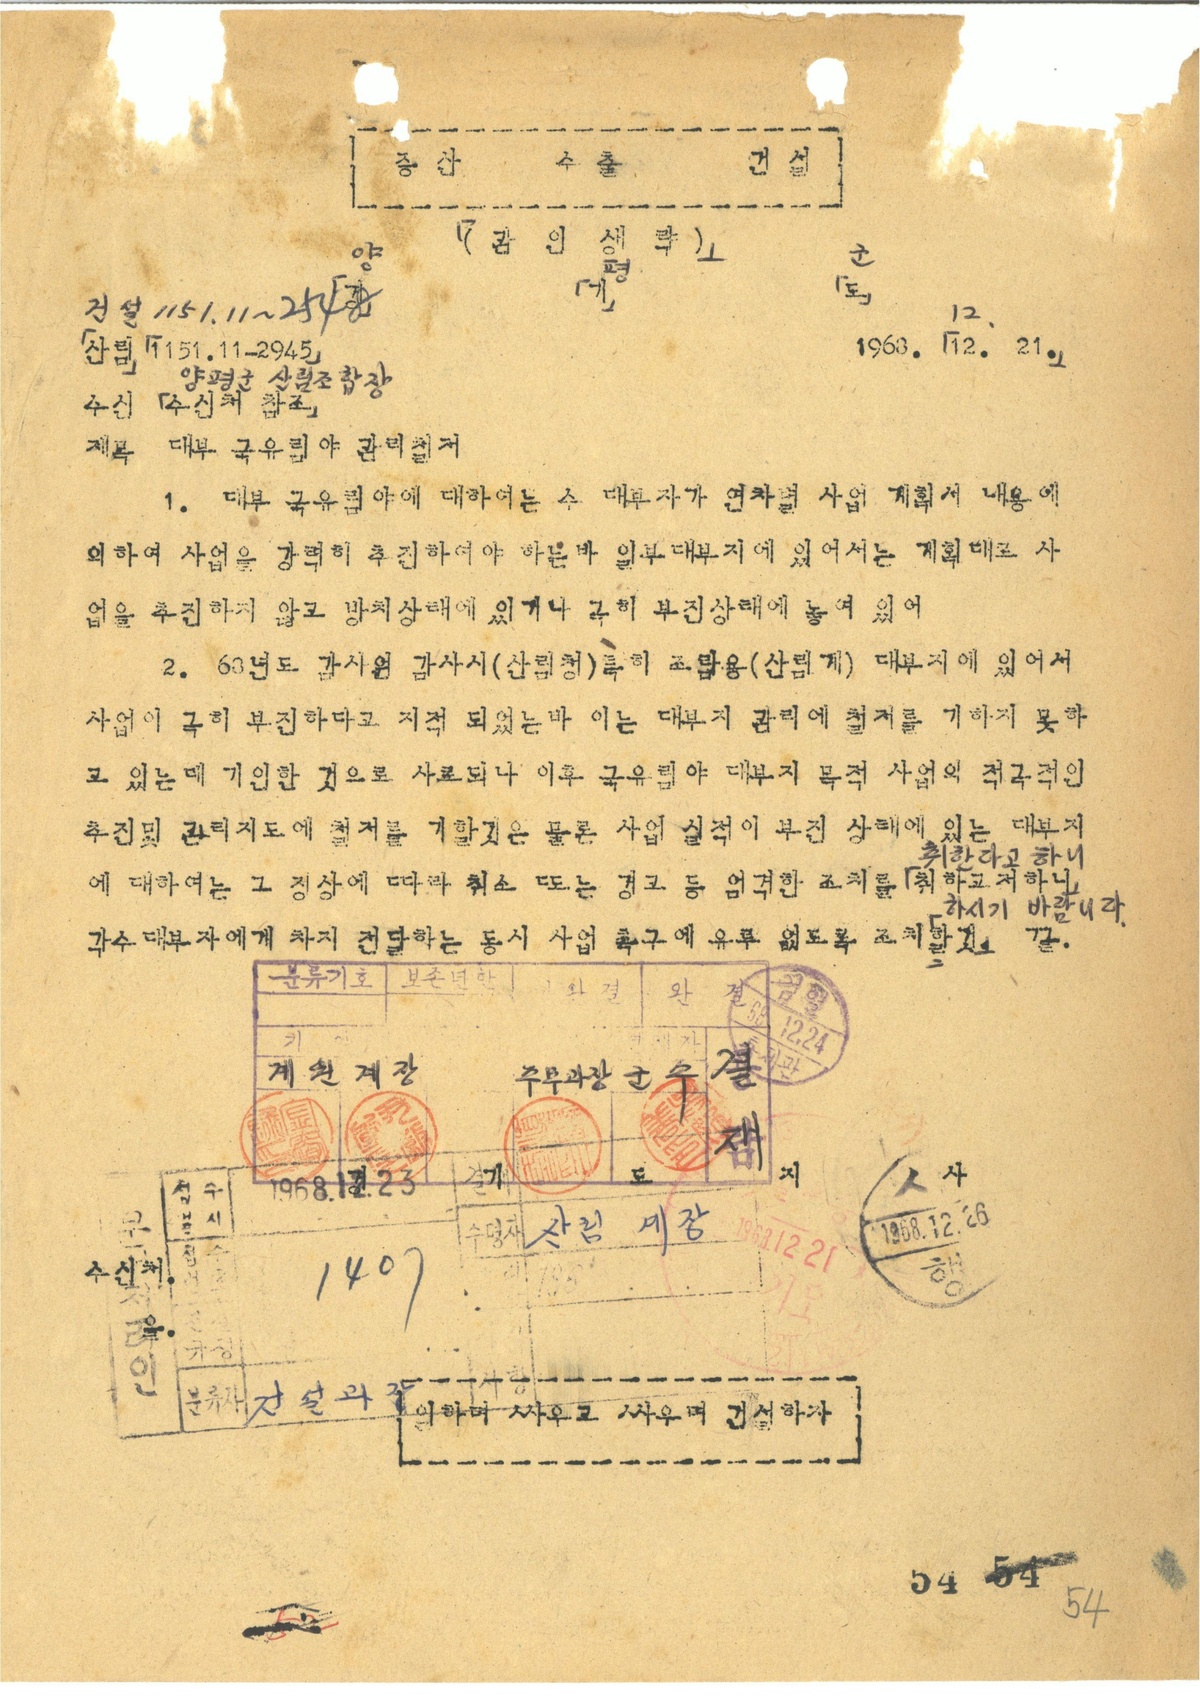 증산 수출 건설
「(관인생략)」
양 평 군
「경」 「기」 「도」
건설 1151.11~254
12.
「산림」「1151.11-2945」 1968. 「12. 21.」
양평군 산림조합장
수신 「수신처 참조」
제목 대부 국유림야 관리철저
1. 대부 국유림야에 대하여는 수 대부자가 연차별 사업 계획서 내용에
의하여 사업을 강력히 추진하여야 하는바 일부대부지에 있어서는 계획대로 사
업을 추진하지 않고 방치상태에 있거나 극히 부진상태에 놓여 있어
2. 68년도 감사원 감사시(산림청)특히 조림용(산림계) 대부지에 있어서
사업이 극히 부진하다고 지적 되었는바 이는 대부지 관리에 철저를 기하지 못하
고 있는데 기인한 것으로 사료되나 이후 국유림야 대부지 목적 사업의 적극적인
추진및 관리지도에 철저를 기할것은 물론 사업 실적이 부진 상태에 있는 대부지
취한다고 하니
에 대하여는 그 정상에 따라 취소 또는 경고 등 엄격한 조치를 「취하고저하니」
하시기 바랍니다.
각수대부자에게 차지 전달하는 동시 사업 촉구에 유루 없도록 조치「할것」 끝.
분류기호 보존년한 완결 완결
발 68.12.24
계원 계장 주무과장 군수 결재
1968.12.23
경 기 도 지 사
수명자 산림계장
1968.12.21
1968.12.26 행
수신처.
1407
을.
분류자 건설과장
일하며 싸우고 싸우며 건설하자
54 54
54